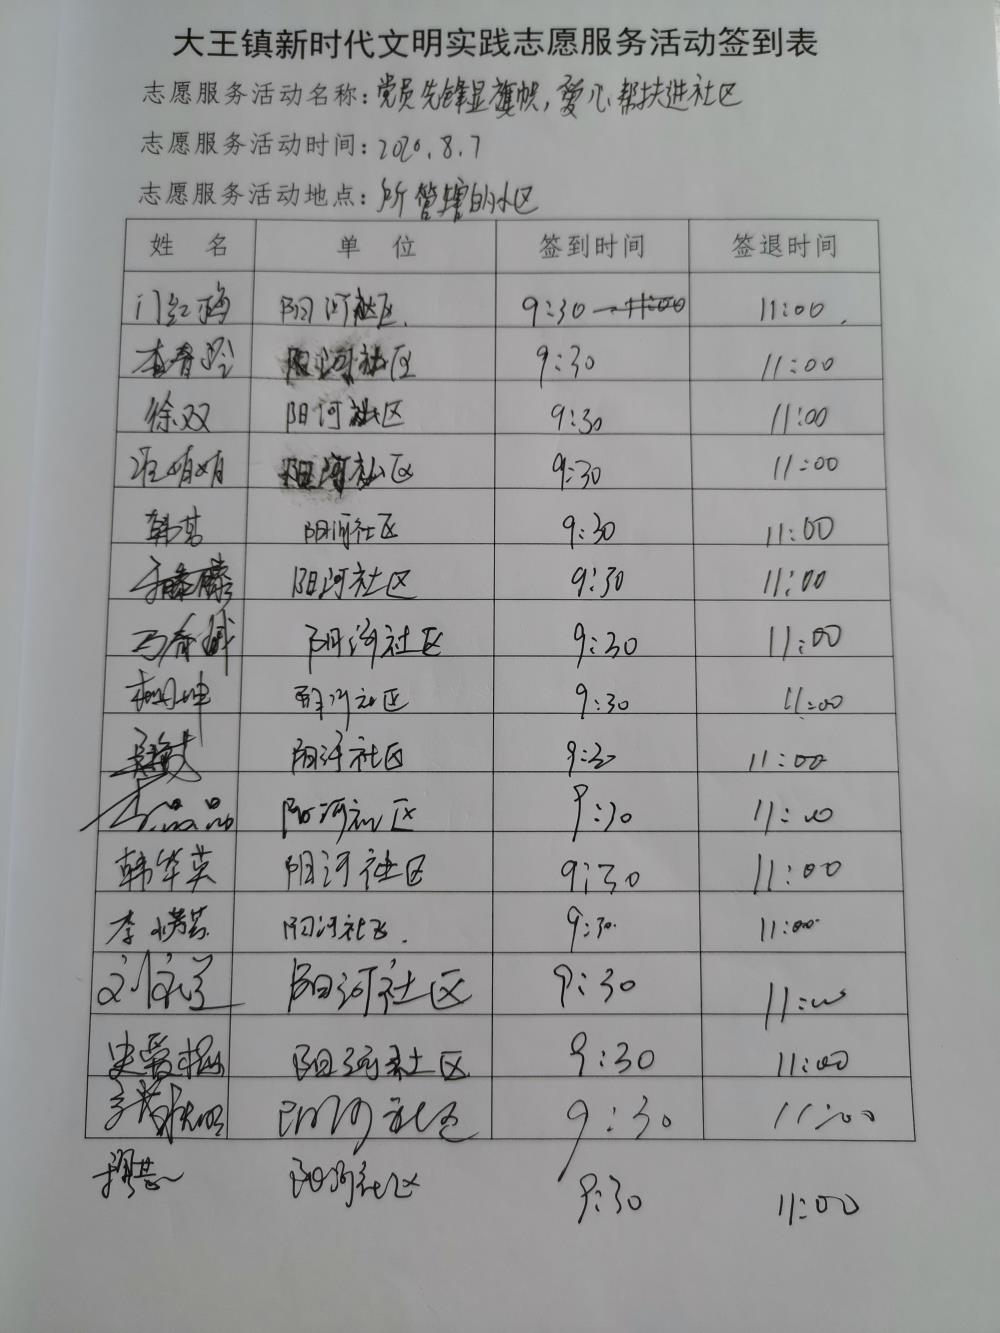 大王镇新时代文明实践志愿服务活动签到表
志愿服务活动名称：党员先锋显旗帜，爱心帮扶进社区
志愿服务活动时间：2020.8.7
志愿服务活动地点：所管辖的小区
姓 名 单 位 签到时间 签退时间
门红梅 阳河社区. 9:30 11:00.
阳河社区 9:30 11:00
徐双 阳河社区 9:30 11:00
娟娟 阳河社区 9:30 11:00
韩 阳河社区 9:30 11:00
阳河社区 9:30 11:00
马春 阳河社区 9:30 11:00
坤 阳河社区 9:30 11:00
阳河社区 9:30 11:00
李品品 阳河社区 9:30 11:00
韩华英 阳河社区 9:30 11:00
李 阳河社区. 9:30. 11:00
刘 阳河社区 9:30 11:00
史爱梅 阳河社区 9:30 11:00
阳河社区 9:30 11:00
阳河社区 9:30 11:00